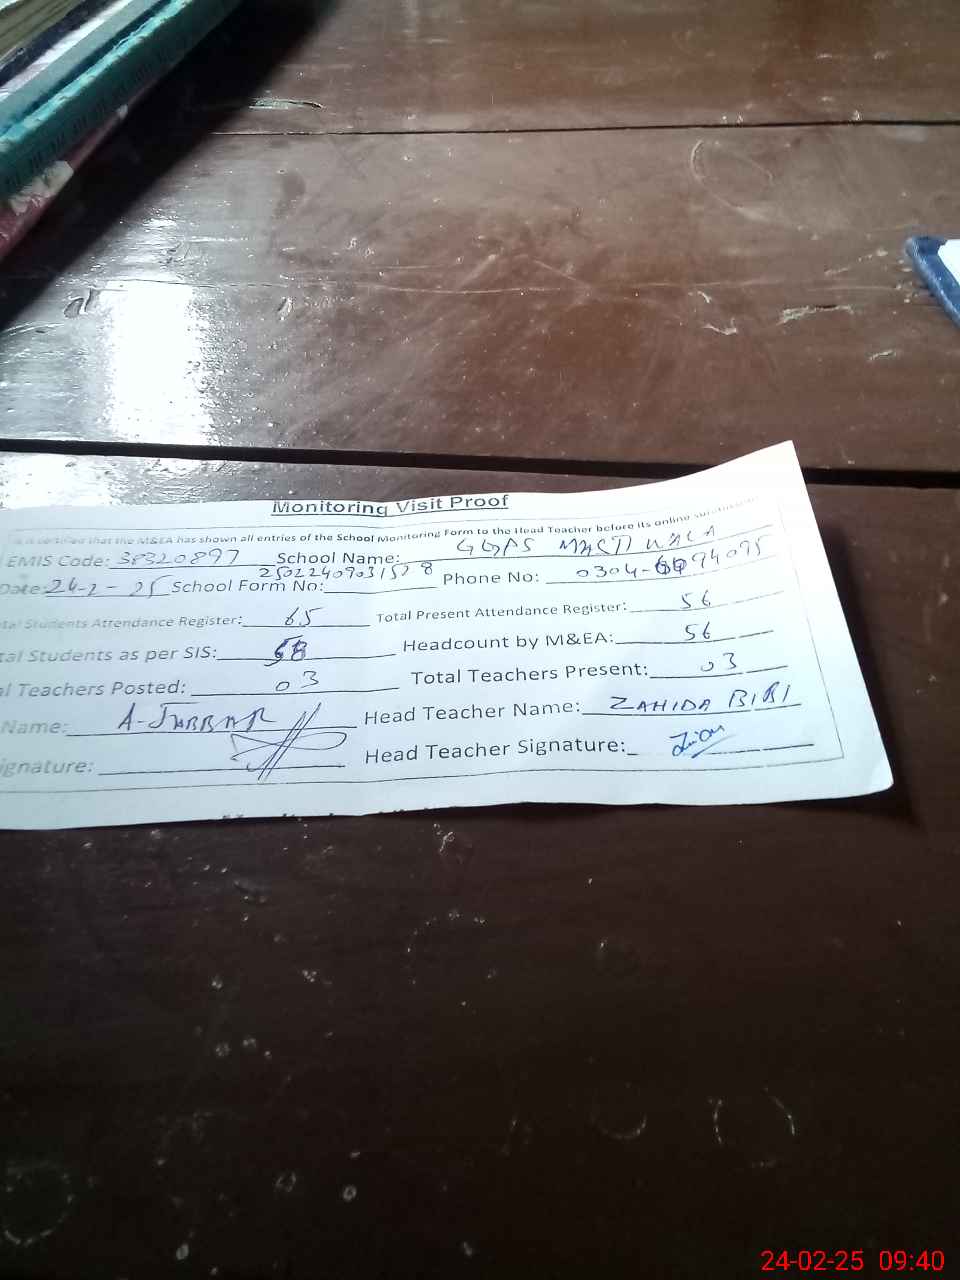 Monitoring Visit Proof
is certified that the M&EA has shown all entries of the School Monitoring Form to the Head Teacher before its online submission
EMIS Code: 38320897 School Name: GGPS MASTI WALA
Date: 24-2-25 School Form No: Phone No: 0304-6994095
tal Students Attendance Register: 65 Total Present Attendance Register: 56
tal Students as per SIS: 58 Headcount by M&EA: 56
al Teachers Posted: 03 Total Teachers Present: 03
Name: A-JABBAR Head Teacher Name: ZAHIDA BIBI
ignature: Head Teacher Signature:
24-02-25 09:40